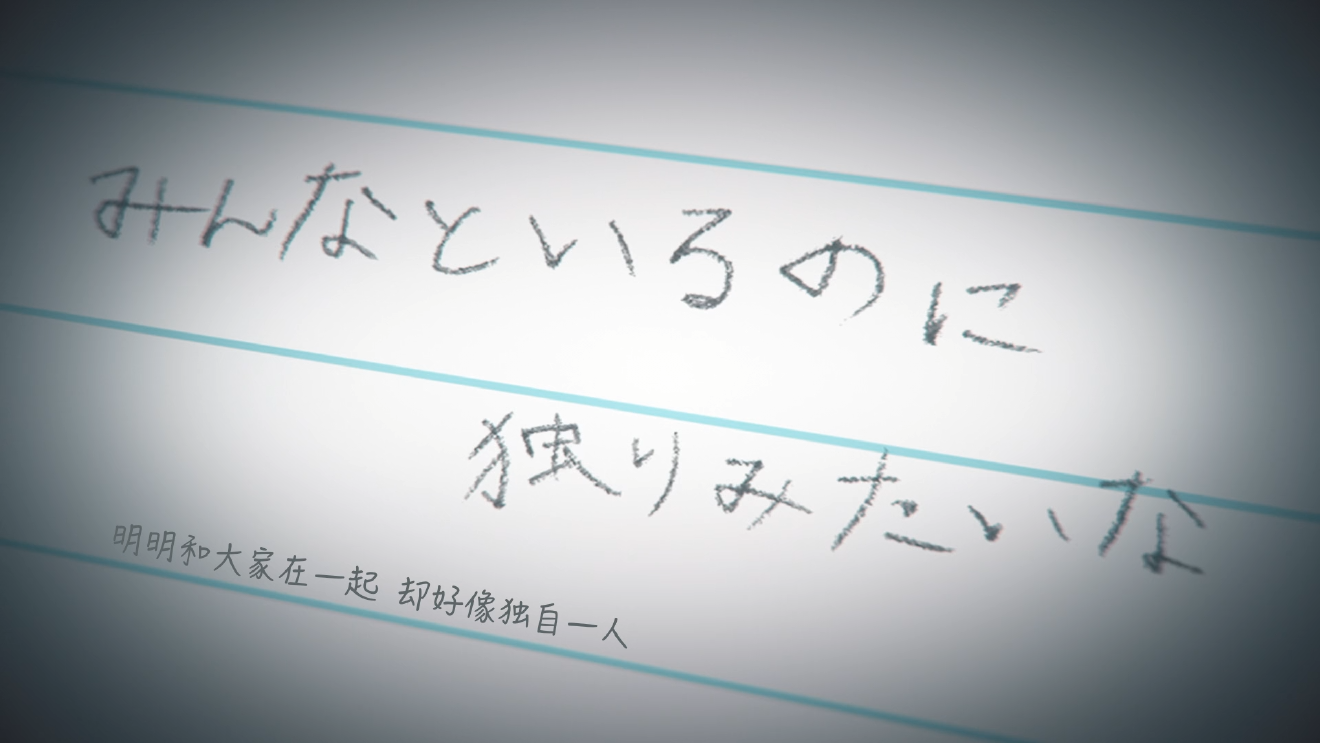 みんなといるのに
独りみたいな
明明和大家在一起 却好像独自一人